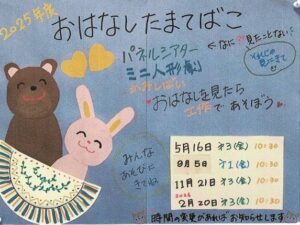 2025年度
おはなしたまてばこ
パネルシアター
←なに?! 見たことない!
ミニ人形劇
かみしばい
おはなしを見たら
工作であそぼう
みんな
あそびに
きてね
5月16日 第3(金) 10:30
9月5日 第1(金) 10:30
11月21日 第3(金) 10:30
2026
2月20日 第3(金) 10:30
時間の変更があればお知らせします